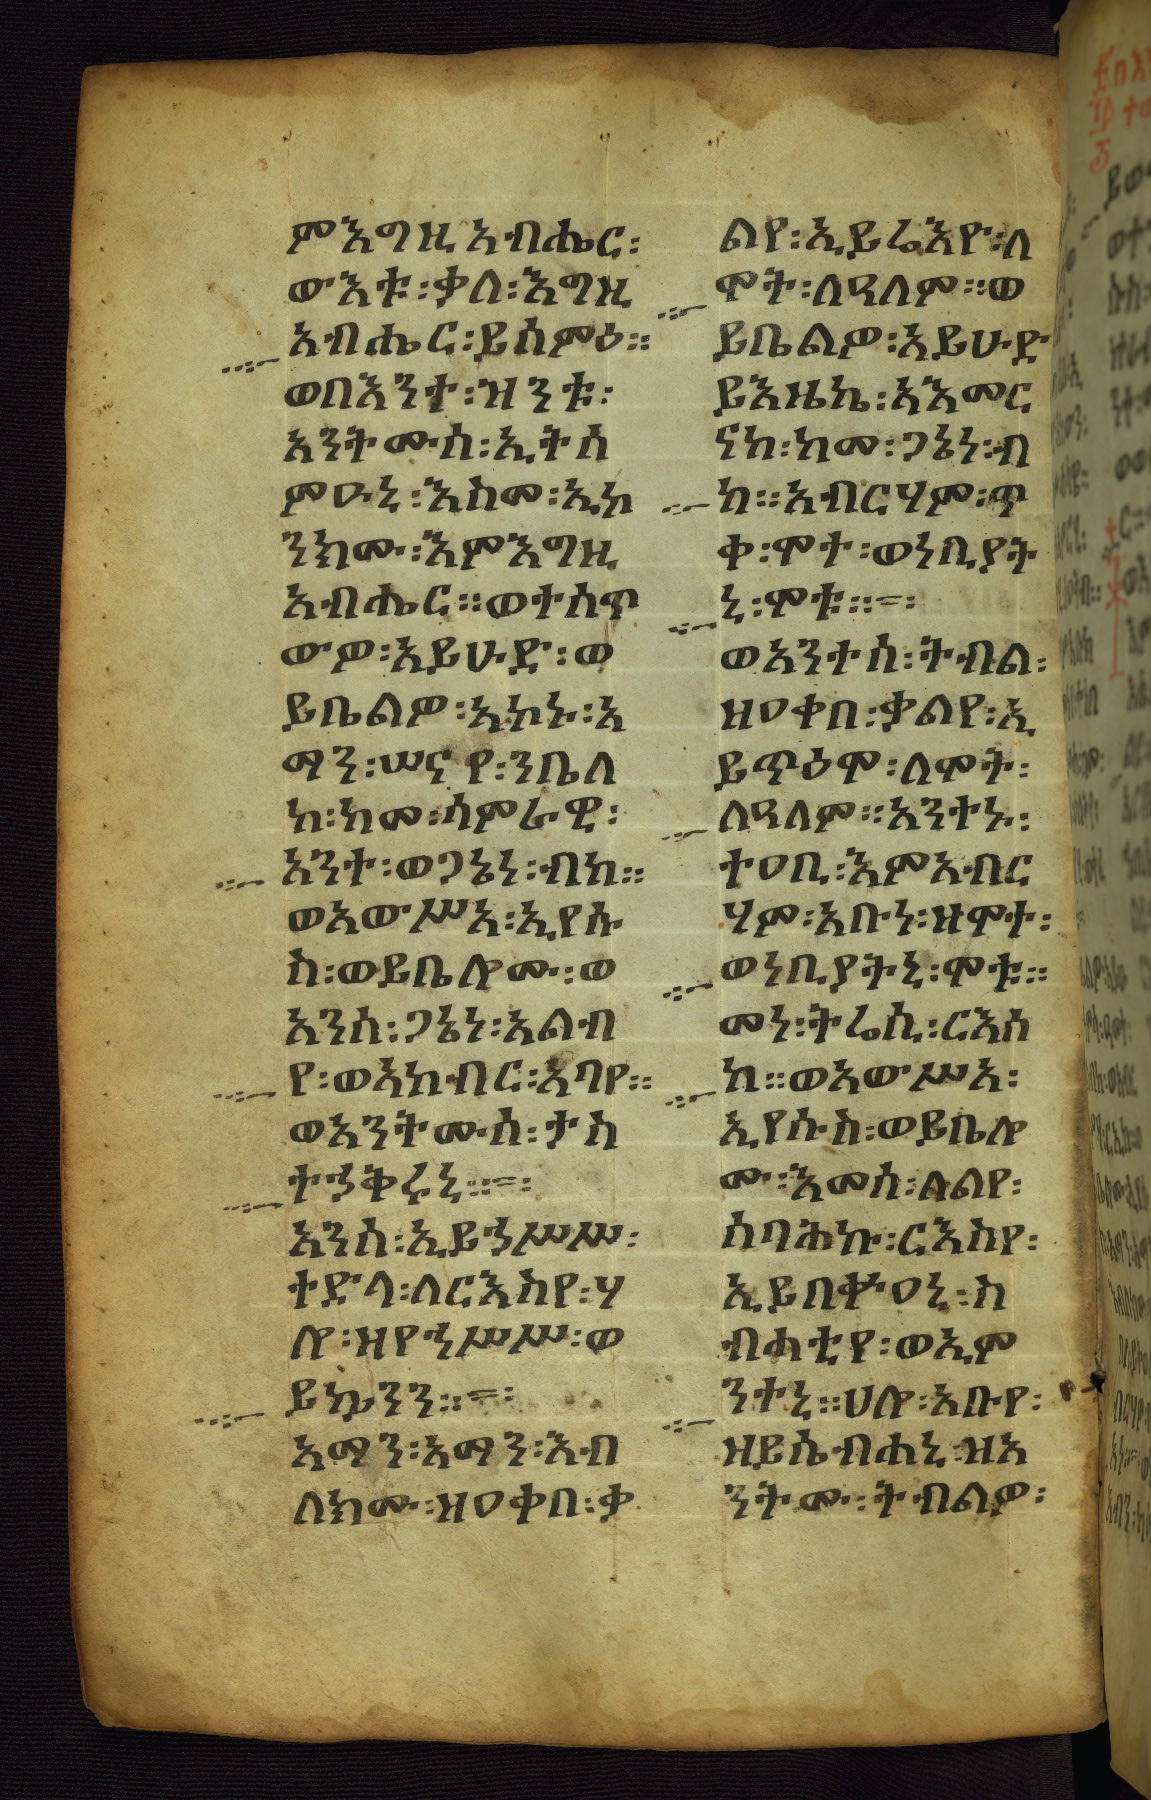 ምእግዚአብሔር፡
ውእቱ፡ቃለ፡እግዚ
አብሔር፡ይሰምዕ፡፡
ወበእንተ፡ዝንቱ፡
አንትሙሰ፡ኢትሰ
ምዑኒ፡እስመ፡ኢኮ
ንክሙ፡እምእግዚ
አብሔር፡፡ወተሰጥ
ውዎ፡አይሁድ፡ወ
ይቤልዎ፡አኮኑ፡አ
ማን፡ሠናየ፡ንቤለ
ከ፡ከመ፡ሳምራዊ፡
አንተ፡ወጋኔነ፡ብከ፡፡
ወአውሥአ፡ኢየሱ
ስ፡ወይቤሎሙ፡ወ
አንሰ፡ጋኔነ፡አልብ
የ፡ወአከብር፡አባየ፡፡
ወአንትሙሰ፡ታስ
ተኃቅሩኒ፡፡=፡
አንሰ፡ኢይኃሥሥ፡
ተድላ፡ለርእስየ፡ሃ
ሎ፡ዘየኃሥሥ፡ወ
ይኴንን፡፡=፡
አማን፡አማን፡እብ
ለክሙ፡ዘዐቀበ፡ቃ
ልየ፡ኢይሬእዮ፡ለ
ሞት፡ለዓለም፡፡ወ
ይቤልዎ፡አይሁድ
ይእዜኬ፡አእመር
ናከ፡ከመ፡ጋኔነ፡ብ
ከ፡፡አብርሃም፡ጥ
ቀ፡ሞተ፡ወነቢያት
ኒ፡ሞቱ፡፡=፡
ወአንተሰ፡ትብል፡
ዘዐቀበ፡ቃልየ፡ኢ
ይጥዕሞ፡ለሞት፡
ለዓለም፡፡አንተኑ፡
ተዐቢ፡እምአብር
ሃም፡አቡነ፡ዘሞተ፡
ወነቢያትኒ፡ሞቱ፡፡
መነ፡ትሬሲ፡ርእሰ
ከ፡፡ወአውሥአ፡
ኢየሱስ፡ወይቤሎ
ሙ፡እመሰ፡ለልየ፡
ሰባሕኩ፡ርእስየ፡
ኢይበቍዐኒ፡ስ
ብሐቲየ፡ወኢም
ንተኒ፡፡ሀሎ፡አቡየ፡
ዘይሴብሐኒ፡ዝአ
ንትሙ፡ትብልዎ፡